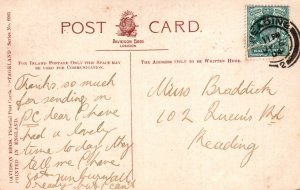 POST CARD.
DAVIDSON BROS.
LONDON
FOR INLAND POSTAGE ONLY THIS SPACE MAY
BE USED FOR COMMUNICATION.
THE ADDRESS ONLY TO BE WRITTEN HERE.
DAVIDSON BROS. Pictorial Post Cards.
PRINTED IN ENGLAND.
Thanks so much
for sending on
PC dear I have
had a lovely
time to day They
tell me I have
got sunburnt
already but I can't
Miss Braddick
102 Queen's Rd
Reading